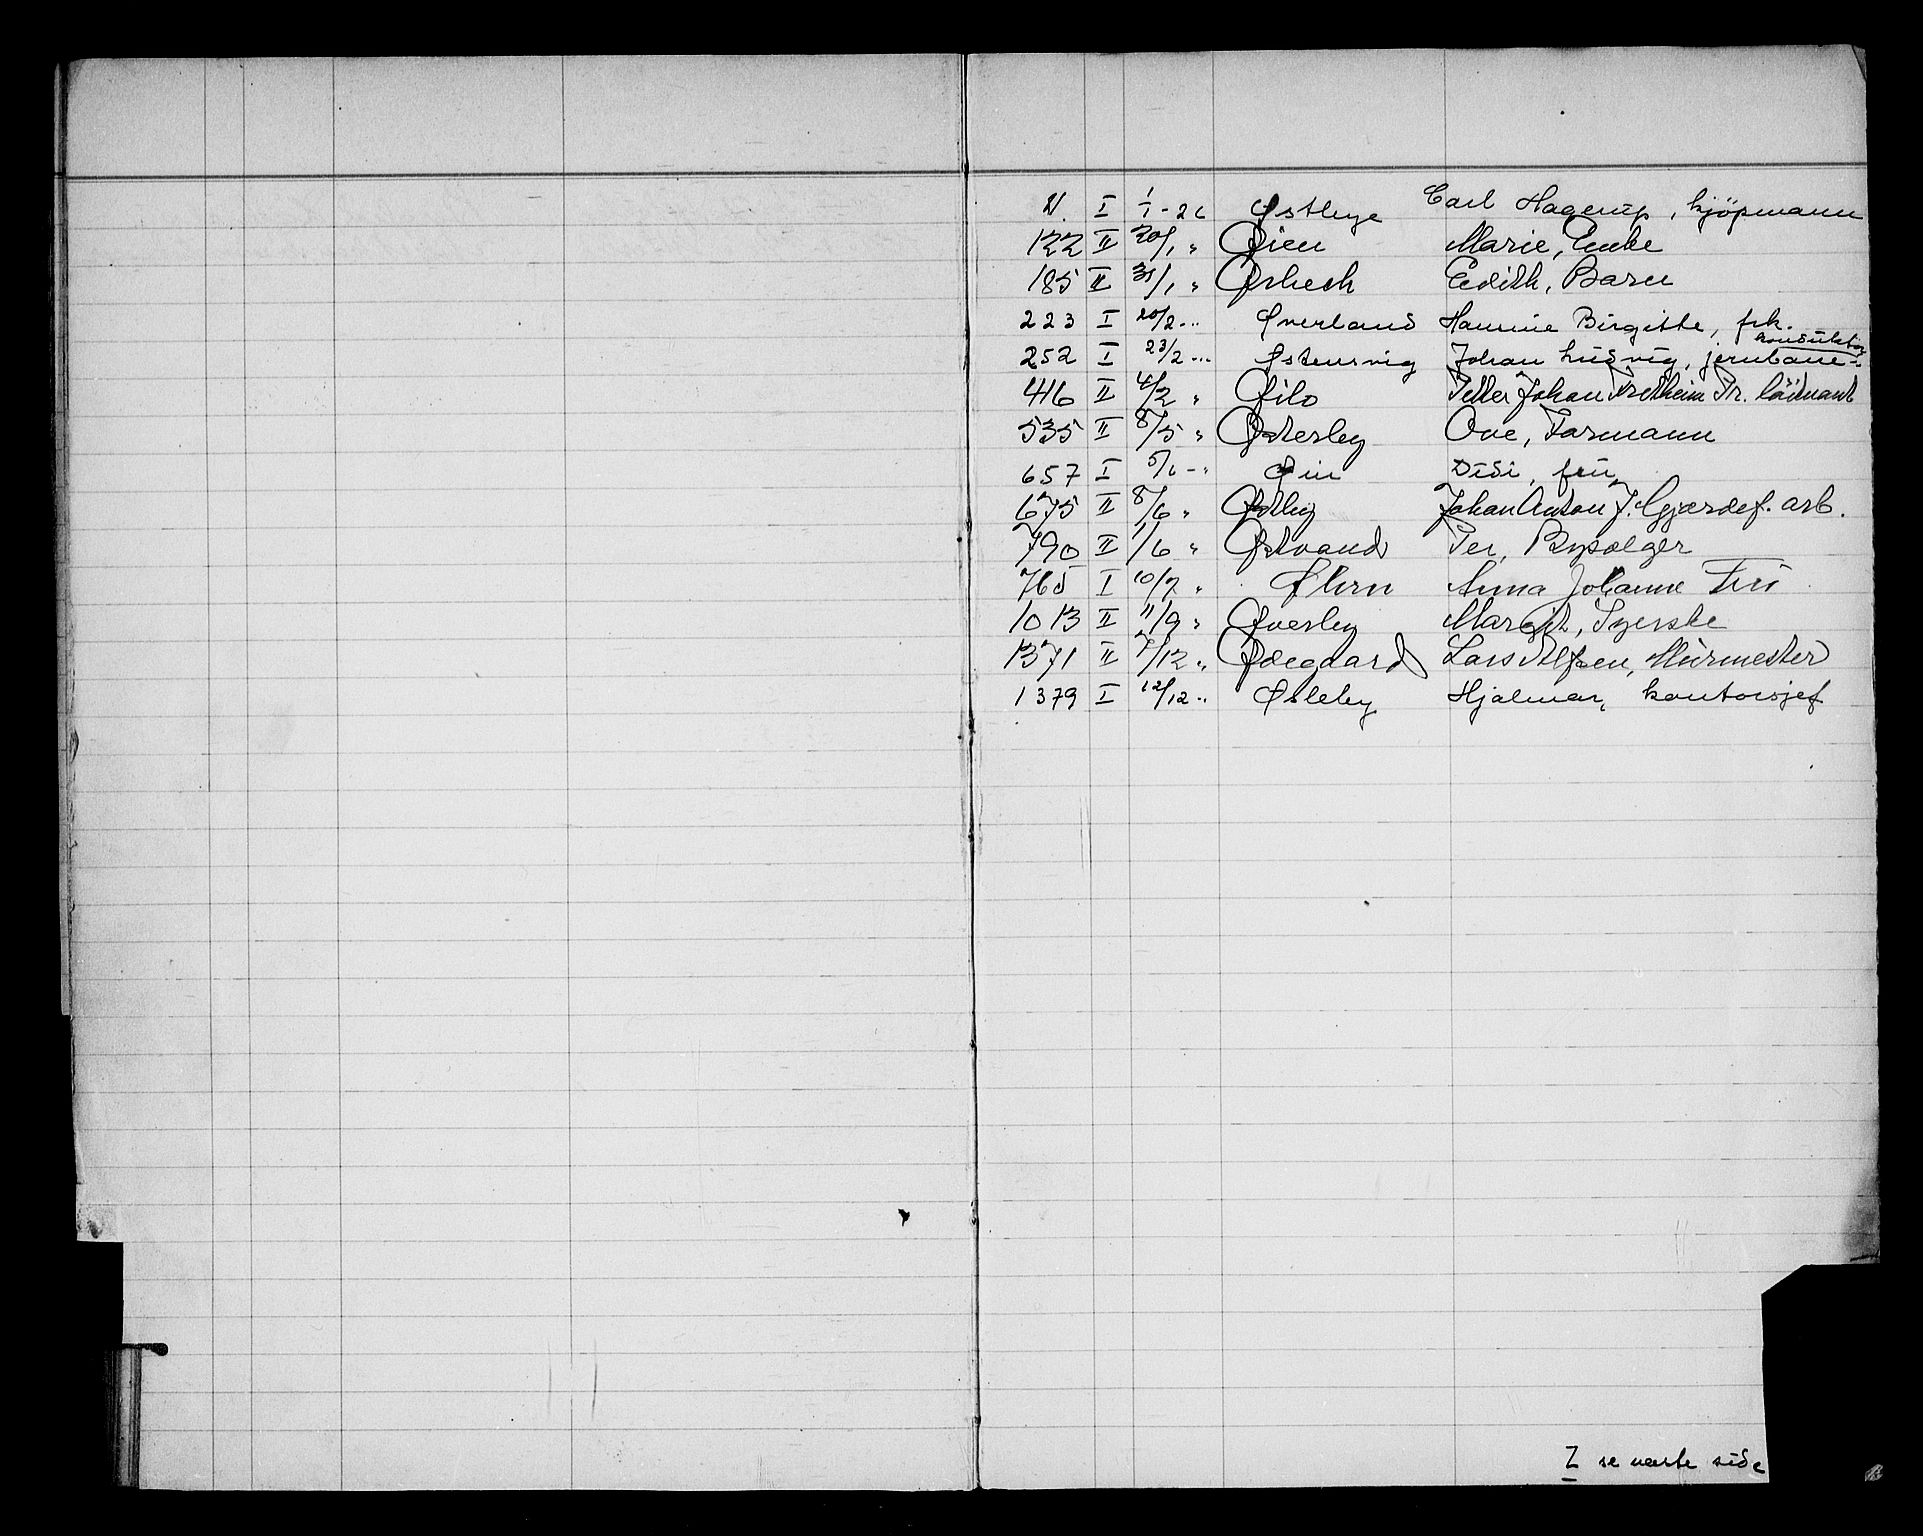 21. I 1/1 - 26 Østbye Carl Hagerup, kjöpmann
122 II 20/1 " Øien Marie, Enke
185 II 31/1 " Ørbech Edith, Barn
223 I 20/2 - " Øverland Hannine Birgitte, frk.
252 I 23/2 - " Østensvig Johan Ludvig, jernbane-
konduktör
416 II 4/2 " Øilo Peder Johan Tretheim Pr. löitnant
535 II 8/5 " Østerby Ove, Formann
657 I 5/6 - " Øen Didi, fru
675 II 8/6 " Østby Johan Anton J. Gjørdef. arb.
790 II 1/6 " Østvand Per, Bypsælger
765 I 10/7 " Øhrn Anna Johanne Fru
1013 II 11/9 " Øverby Margit, Syerske
1371 II 7/12 " Ødegaard Lars Alfsen, Murmester
1379 I 12/12 - " Østeby Hjalmar, kontorsjef
Z se næste side